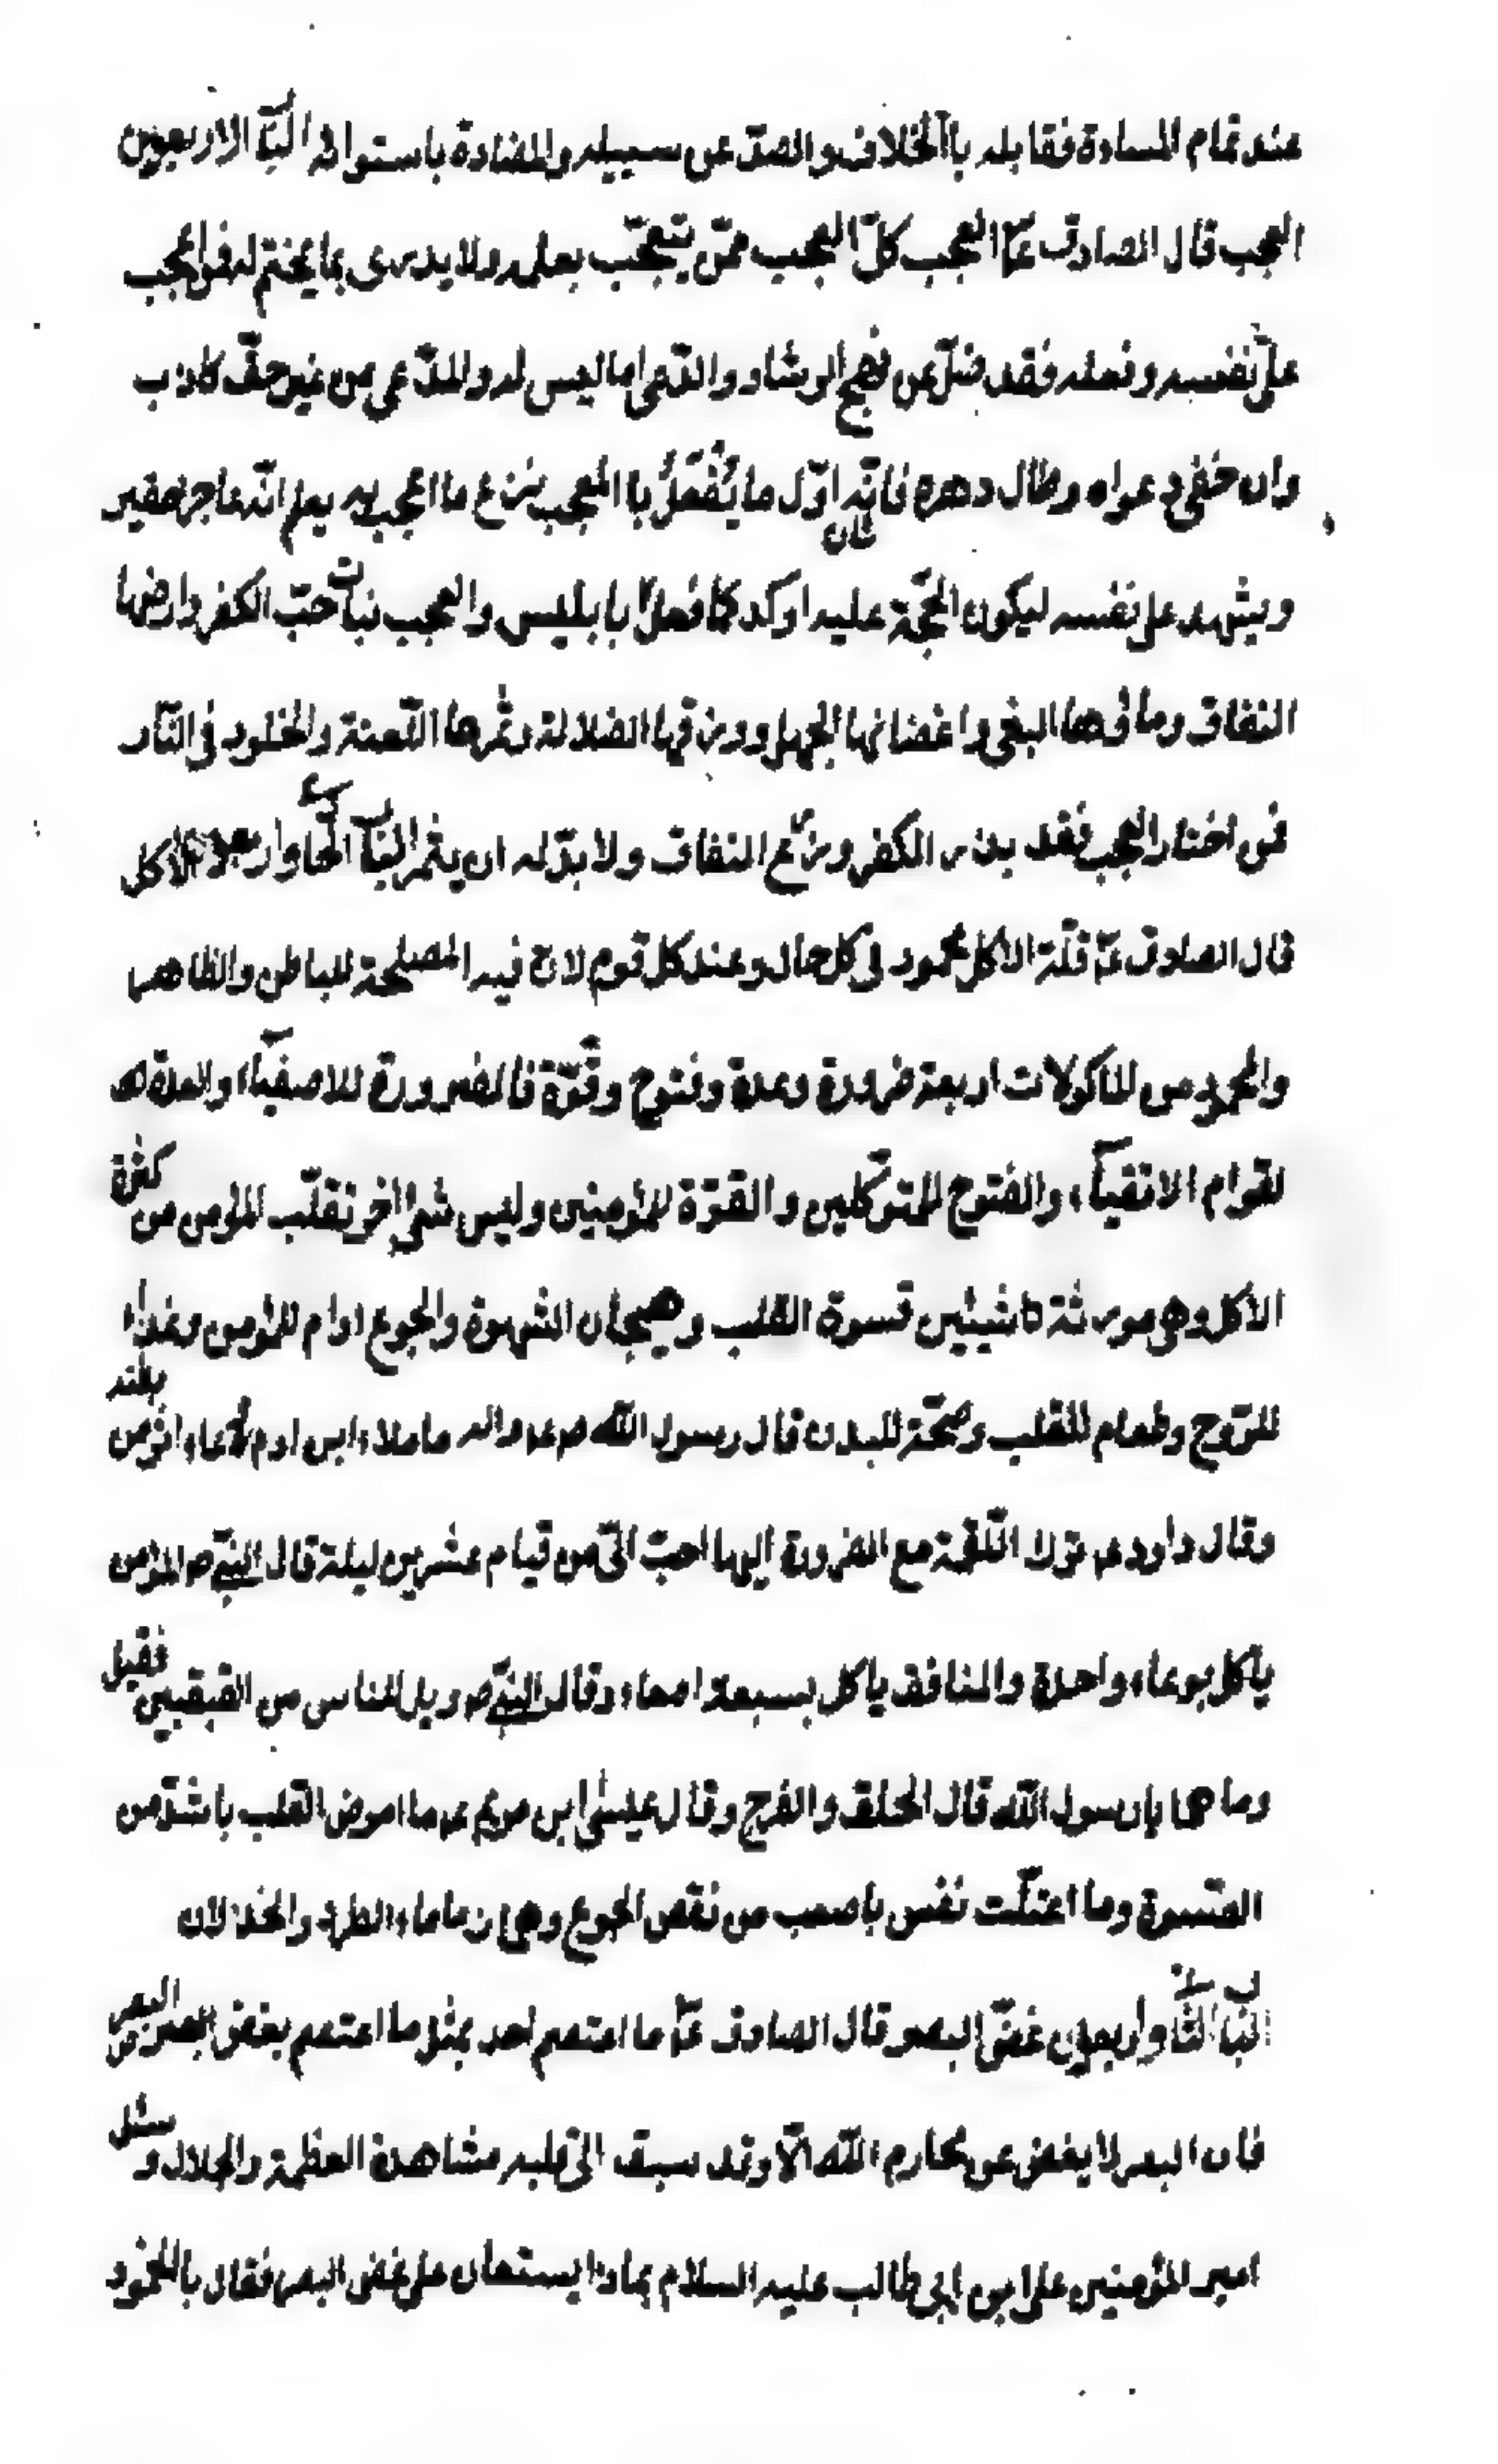 عند تمام المساءة فقابله باالخلاف والصدّ عن سبيله والمضادة باستوائه البا الاربعون
العجب قال الصادق عم العجب كلّ العجب ممّن يتعجّب بعمله ولا يدرى بما يختم له فمن اعجب
على نفسه وفعله فقد ضلّ عن نهج الرشاد وادّعى ما ليس له والمدّعى من غير حقّ كاذب
وان خفى دعواه وطال دهره فانّه اوّل ما يُفْعَلُ باالمعجب نزع ما اعجب به ليعلم انّه عاجز حقير
ويشهد على نفسه ليكون الحجّة عليه اوكد كما فعل بابليس والعجب نبات حبّ الكفر وارضها
النفاق وماؤها البغى واغصانها الجهل وورقها الضلالة وثمرها اللّعنة والخلود فى النّار
فمن اختار العجب فقد بذر الكفر وزرع النفاق ولا بدّ له ان يثمر البا الحا واربعون الاكل
قال الصادق عم قلّة الاكل محمود فى كل حال وعند كل قوم لان فيه المصلحة للباطن والظاهر
والمحمود من الماكولات اربعة ضرورة وعدة وفتوح وقوّة فالضرورة للاصفياء والعدة
لقوام الاتقياء والفتوح للمتوكلين والقوّة للمؤمنين وليس شئ اضر لقلب المؤمن من كثرة
الاكل وهى مورثة لشيئين قسوة القلب وهيجان الشهوة والجوع ادام للمؤمن وغذاء
للرّوح وطعام للقلب وصحّة للبدن قال رسول الله ص ع واله ما ملاء ابن ادم وعاء اشر من بطنه
وقال داود ع ترك اللّقمة مع الضرورة اليها احبّ الىّ من قيام عشرين ليلة قال النبى ص المؤمن
ياكل بوعاء واحدة والمنافق ياكل بسبعة امعاء وقال النبى ص ويل للناس من القبقبين فقيل
وما هما يا رسول الله قال الحلق والفرج وقال عيسى ابن مريم ع ما امرض القلب باشدّ من
القسوة وما اعتلّت نفس باصعب من نقص الجوع وهى زماما الطرد والخذلان
البا الثا واربعون غضّ البصر قال الصادق عم ما اعتصم احد بمثل ما اعتصم بغض البصر
فان البصر لا يغض عن محارم الله الّا وقد سبق الى قلبه مشاهدة العظمة والجلال وسئل
امير المؤمنين على ابن ابى طالب عليه السلام بماذا يستعان على غض البصر فقال بالخمود